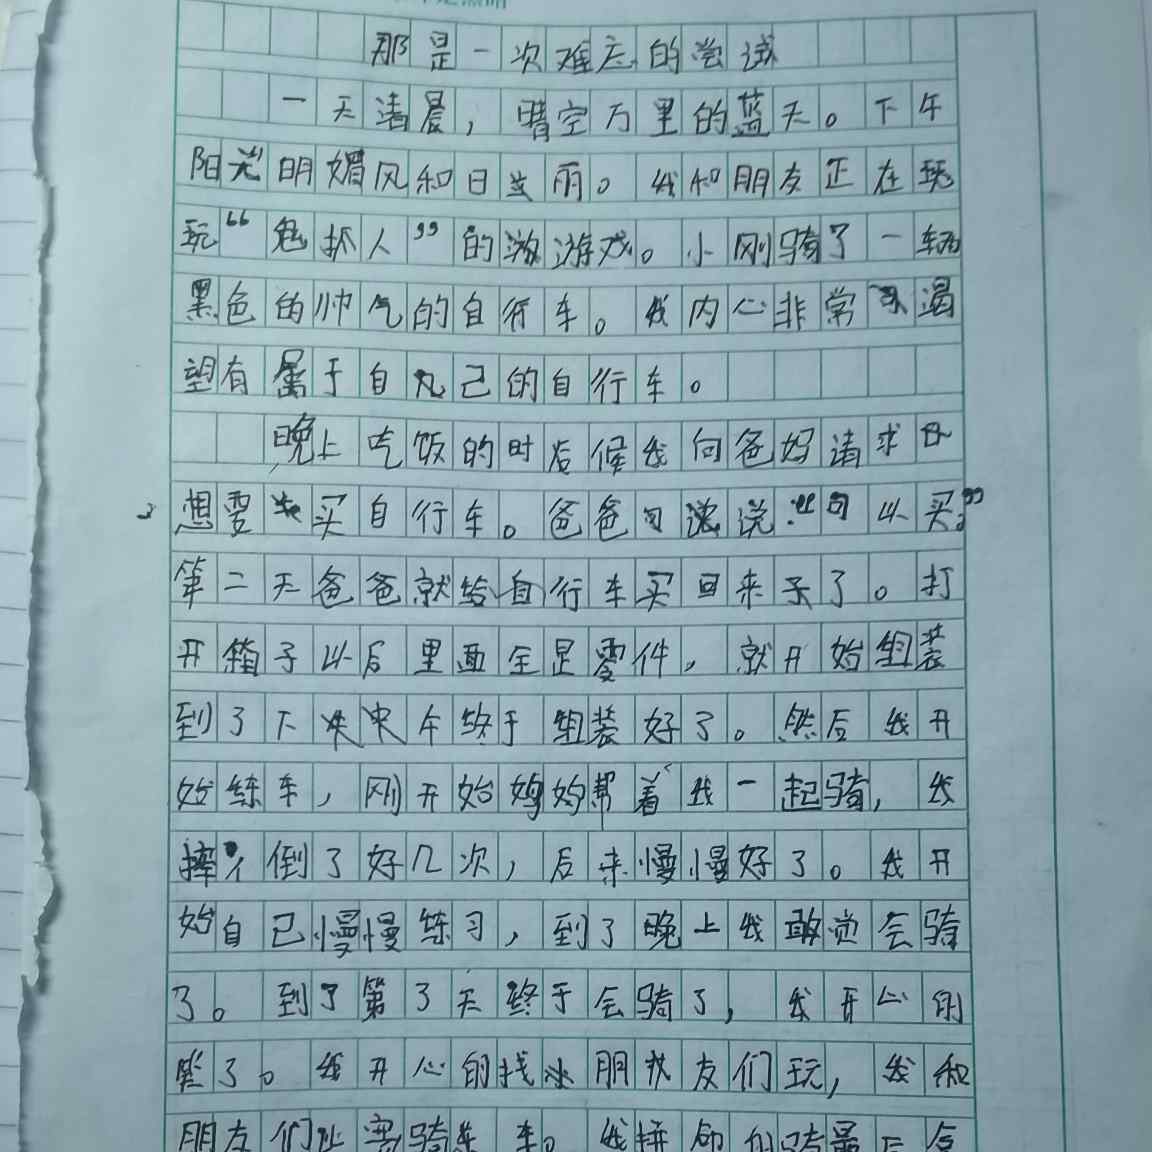 那是一次难忘的尝试
一天清晨，晴空万里的蓝天。下午
阳光明媚风和日丽。我和朋友正在玩
玩“鬼抓人”的游戏。小刚骑了一辆
黑色的帅气的自行车。我内心非常渴
望有属于自己的自行车。
晚上吃饭的时候我向爸妈请求
想要买自行车。爸爸说：“可以买。”
第二天爸爸就给自行车买回来了。打
开箱子以后里面全是零件，就开始组装
到了下午终于组装好了。然后我开
始练车，刚开始妈妈帮着我一起骑，我
摔倒了好几次，后来慢慢好了。我开
始自己慢慢练习，到了晚上我敢觉会骑
了。到了第了天终于会骑了，我开心的
笑了。我开心的找朋友们玩，我和
朋友们比赛骑车。我拼命的骑最后